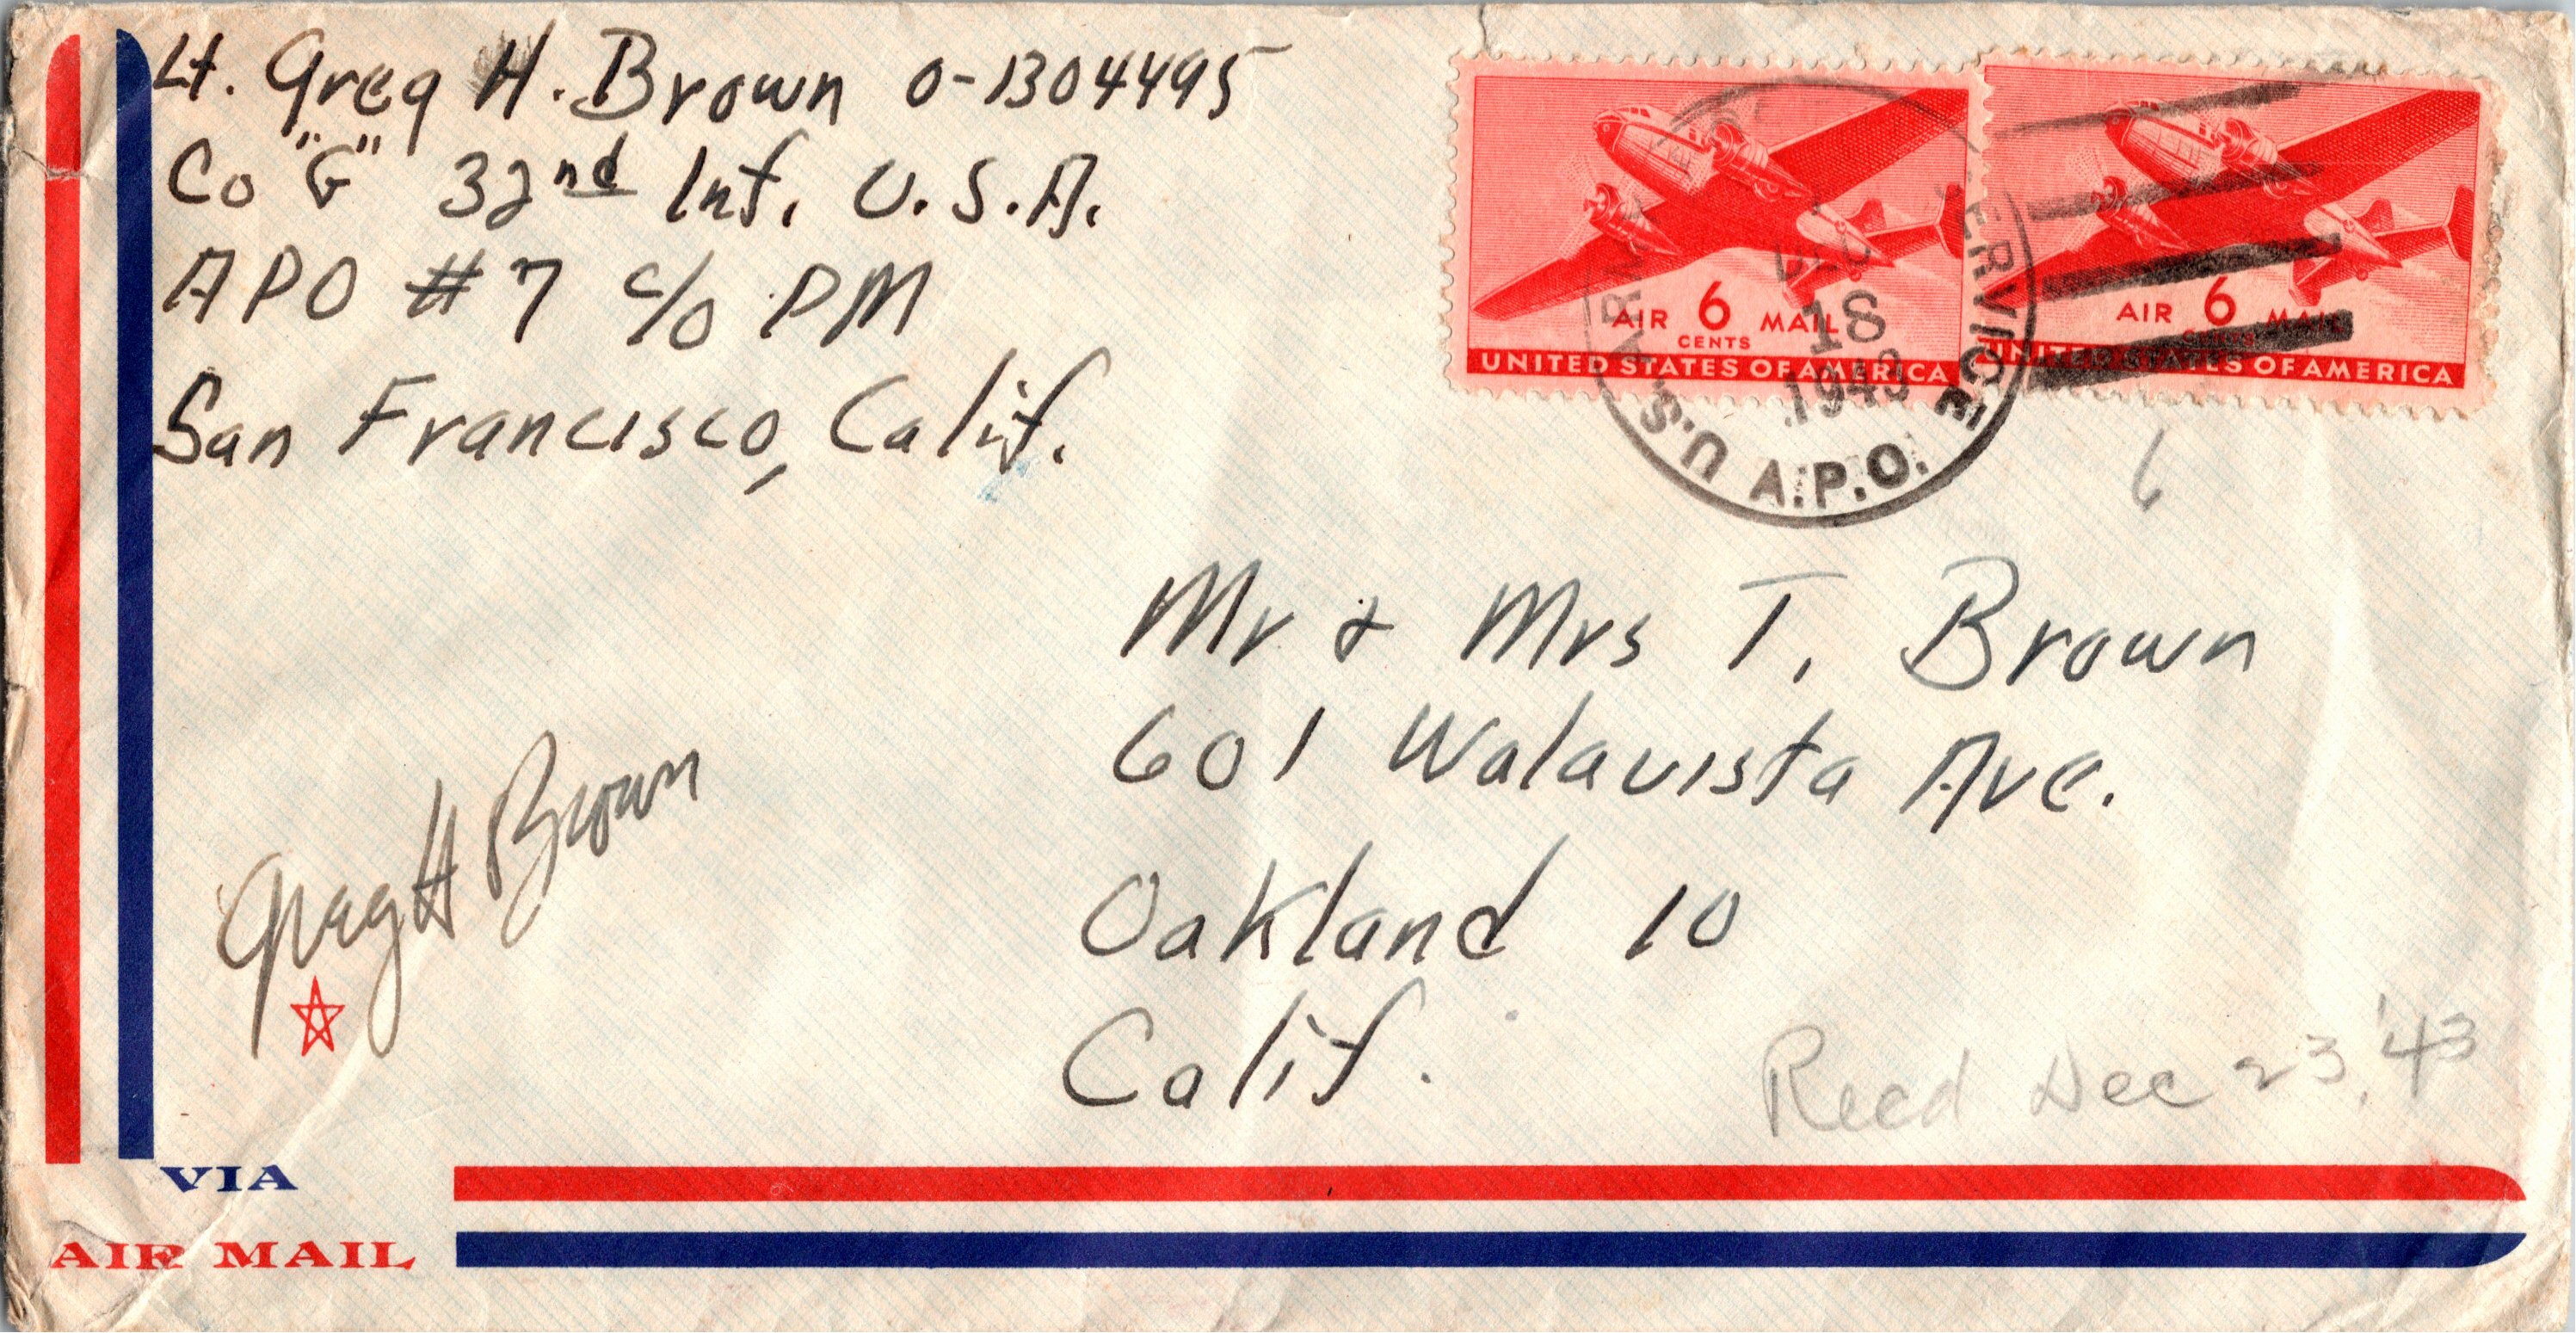 Lt. Greg H. Brown O-1304495
Co "G" 32nd Inf. U.S.A.
APO #7 c/o PM
San Francisco, Calif.
AIR 6 MAIL
CENTS
UNITED STATES OF AMERICA
AIR 6 MAIL
CENTS
UNITED STATES OF AMERICA
U.S. ARMY SERVICE
DEC
18
1943
A.P.O.
6
Mr & Mrs T. Brown
601 Walavista Ave.
Oakland 10
Calif.
Greg H Brown
Recd Dec 23, '43
VIA
AIR MAIL